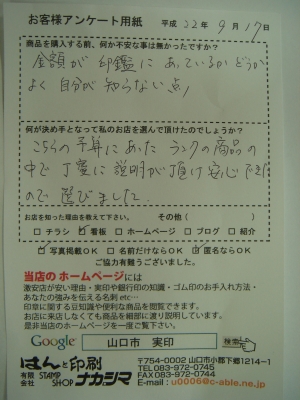 お客様アンケート用紙 平成 22年 9月 17日
商品を購入する前、何か不安な事は無かったですか?
金額が印鑑にあっているかどうか
よく自分が知らない点、
何が決め手となって私のお店を選んで頂けたのでしょうか?
こちらの予算にあった ランクの商品の
中で 丁寧に説明が頂け 安心できた
ので 選びました。
お店を知った理由を教えて下さい。 その他( )
□ チラシ □ 看板 □ ホームページ □ ブログ □ 紹介
□ 写真掲載OK □ 名前だけならOK □ 匿名ならOK
ご協力有難うございました。
当店の ホームページには
激安店が安い理由・実印や銀行印の知識・ゴム印のお手入れ方法・
あなたの強みを伝える名刺 etc…
印章に関する豆知識や便利な商品を閲覧できます。
お店に来店しなくても商品を細部に渡り説明しています。
是非当店のホームページを一度ご覧下さい。
Google 山口市 実印 検索
はんと印刷
有限会社 STAMP SHOP ナカシマ
〒754-0002 山口市小郡下郷1214-1
TEL083-972-0745
FAX083-972-0744
E-mail : u0006@c-able.ne.jp